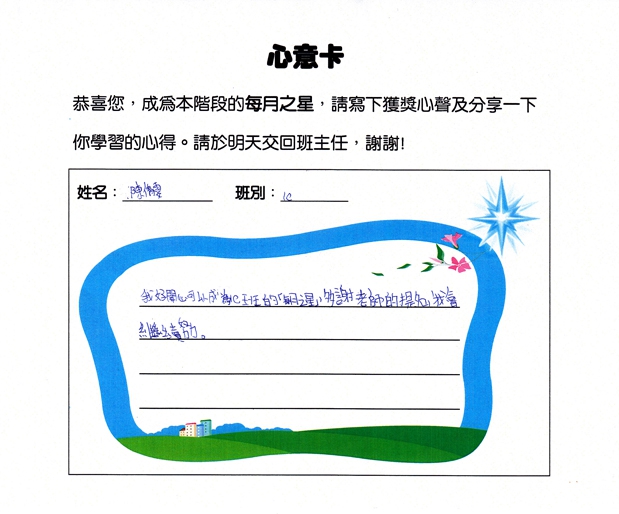 心意卡
恭喜您，成為本階段的每月之星，請寫下獲獎心聲及分享一下
你學習的心得。請於明天交回班主任，謝謝!
姓名：陳 班別：1C
我好開心可以成為C班的「每月之星」,多謝老師的提名,我會
繼續努力。